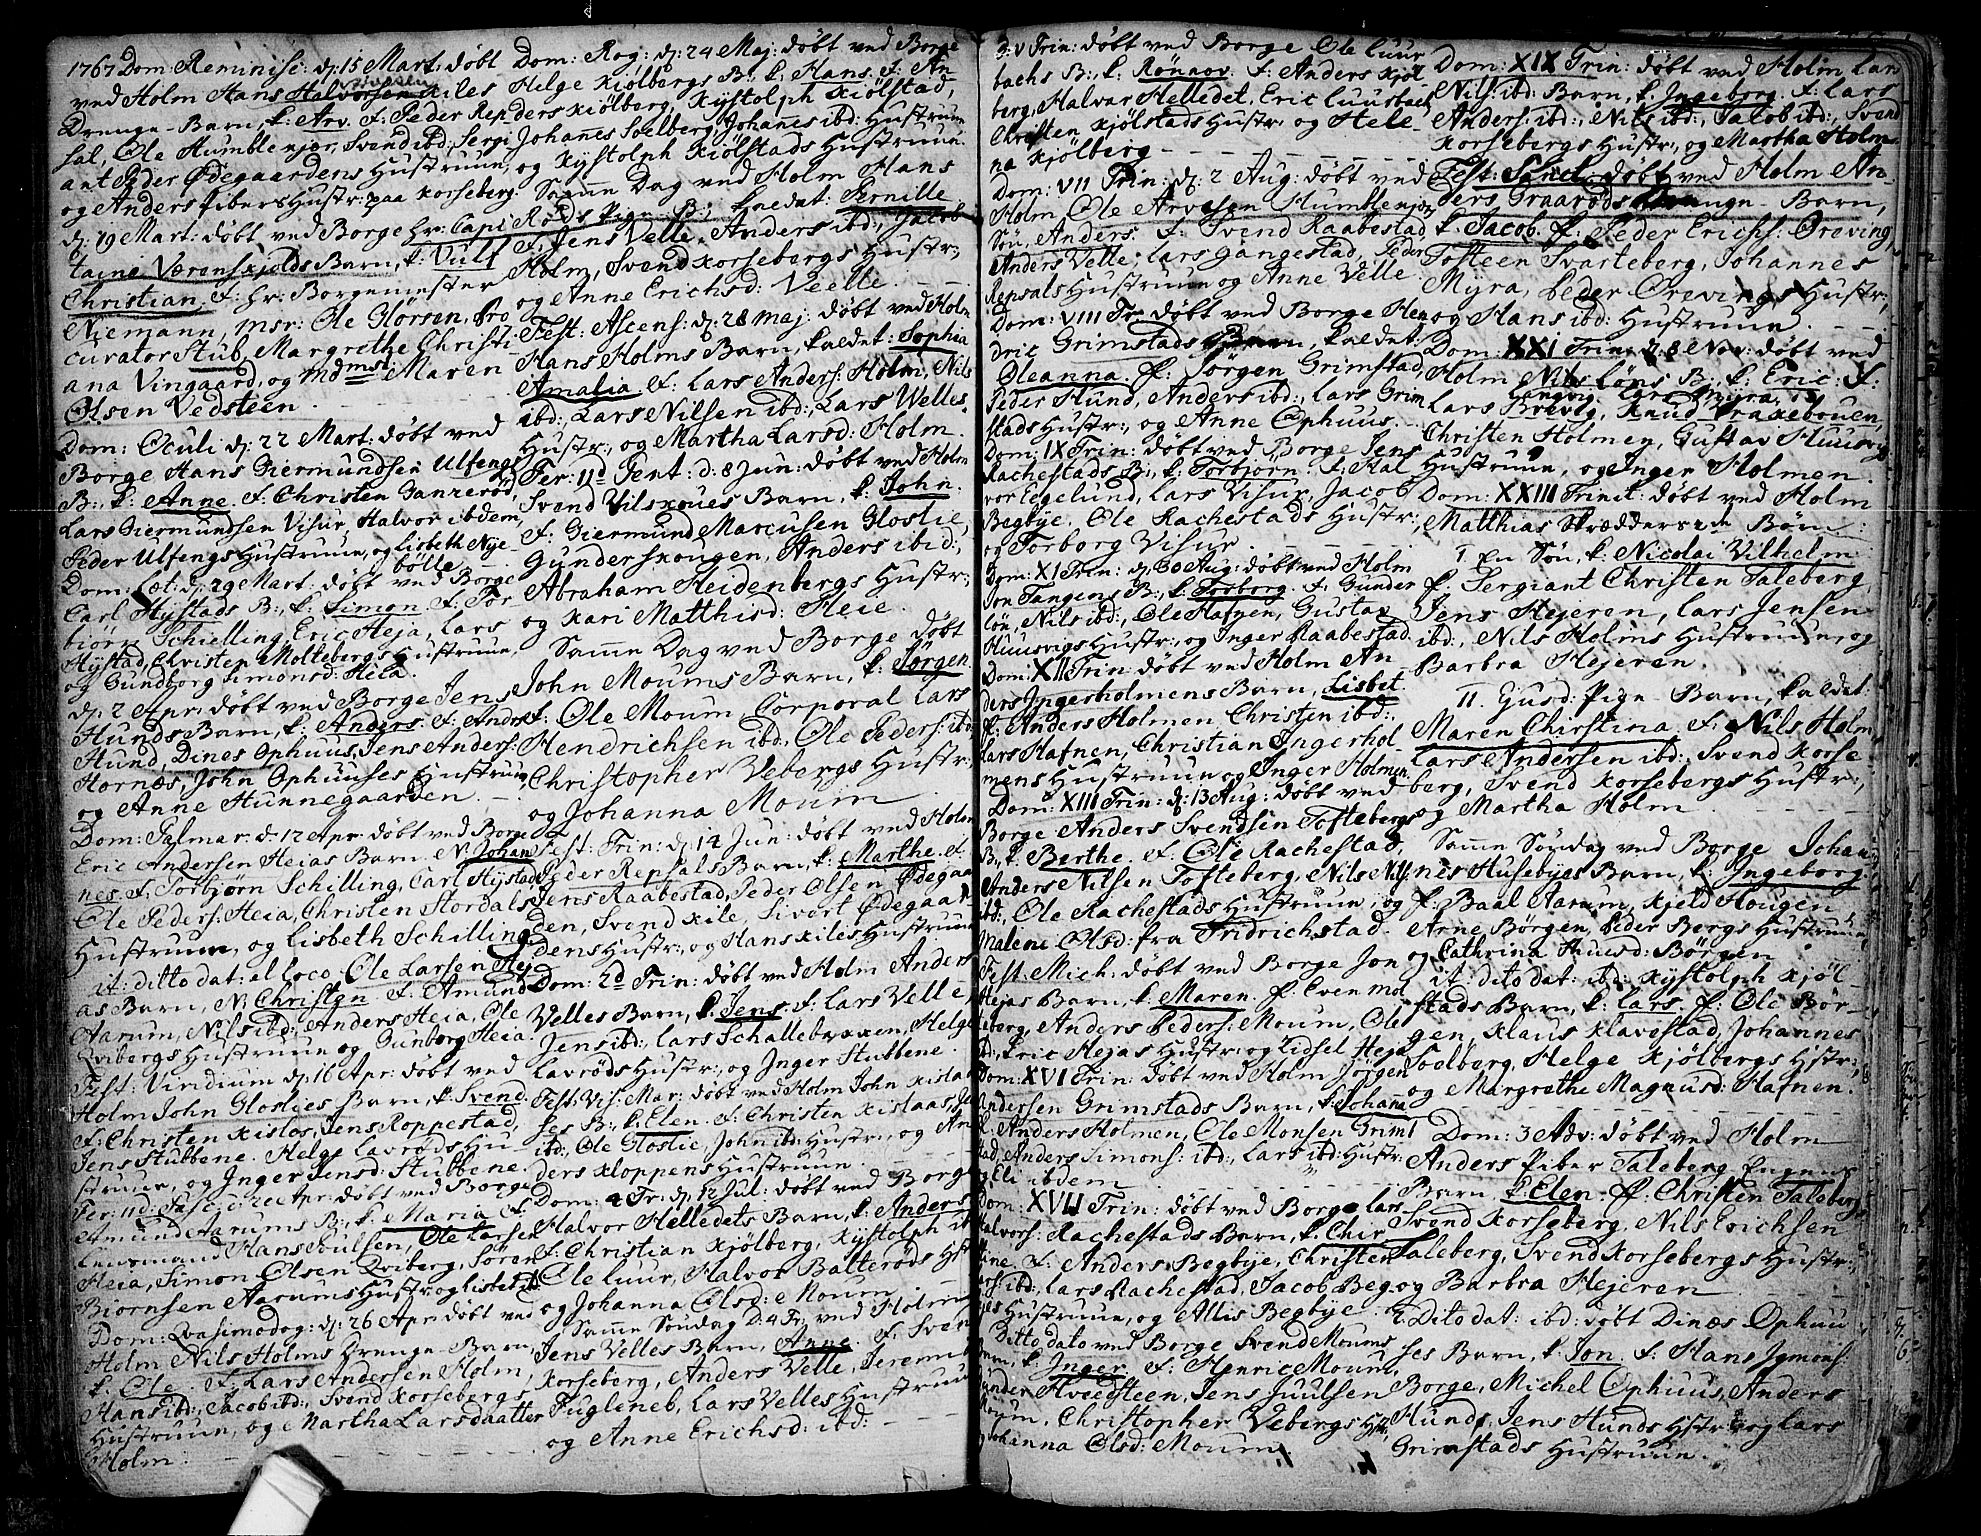 1767 Dom: Reminisc: d: 15 Mart: døbt
ved Holm Hans Halvorsen Kiles
Iversen
Drenge-Barn, k: Arv. f: Peder Rep
sal, Ole Humblekjær, Svend ibd:, Sergi
ant Peder Ødegaardens Hustruue,
og Anders Pibers Hustr: paa Korseberg.
d: 19 Mart: døbt ved Borge Hr: Capi
taine Værenskjolds Barn, k: Vulf
Christian. f: Hr: Borgemester
Niemann, Msr: Ole Glørsen, Pro
curator Stub, Margrethe Christi
ana Vingaard, og Mdmsl Maren
Olsen Vedsteen.
Dom: Oculi d: 22 Mart: døbt ved
Borge Hans Giermundsen Ulfengs
B:, k: Anne. f: Christen Ganrerød,
Lars Giermundsen Visur, Halvor ibdem,
Peder Ulfengs Hustruue, og Lisbeth Nye
bølle.
Dom: Læt: d: 29 Mart: døbt ved Borge
Carl Hystads B:, k: Simon. f: Tor
biørn Schielling, Eric Heja, Lars
Hystad, Christen Moltebergs Hustruue,
og Gundborg Simonsd: Heia.
d: 2 Apr: døbt ved Borge Jens
Hunds Barn, k: Anders. f: Anders
Hund, Dines Ophuus, Jens Anders:
Hornæs, John Ophuuses Hustruue,
og Anne Hunnegaarden.
Dom: Palmar: d: 12 Apr: døbt ved Borge
Eric Andersen Heias Barn. N: Johan
nes. f: Torbjørn Schilling, Carl Hystad
Ole Peders: Heia, Christen Stordals
Hustruue, og Lisbeth Schilling.
it: ditto dat: el loco: Ole Larsen Hej
as Barn, N: Christen. f: Amund
Aarum, Nils ibd:, Anders Heia, Ole
Qvibergs Hustruue og Gunborg Heia.
Fest: Viridium d: 16 Apr: døbt ved
Holm John Gloslies Barn, k: Svend.
f: Christen Kislos, Jens Roppestad,
Jens Stubbene. Helge Lavrøds Hu
struue, og Inger Jensd: Stubbene.
Fer: 11d: Pasc: d: 20 Apr: døbt ved Borge
Amund Aarums B:, k: Maria. f:
Lensmand Hans Poulsen, Ole Larsen
Heia, Simon Olsen Qviberg, Søren
Biørnsen Aarums Hustr: og Lisbeth ibd:
Dom: Qvasimodog: d: 26 Apr: døbt ved
Holm Nils Holms Drenge-Barn,
k: Ole. f: Lars Andersen Holm,
Hans ibd:, Jacob ibd:, Svend Korsebergs
Hustruue, og Martha Larsdaatter
Holm.
Dom: Rog: d: 24 Maj: døbt ved Borge
Helge Kjølbergs B: k: Hans. f: An
ders Kjølberg, Kystolph Kjølstad,
Johanes Soelberg, Johanes ibd: Hustruue
og Kystolph Kjølstads Hustruue.
Samme Dag ved Holm Hans
Røds Pige-B:, kaldet: Pernille
f: Jens Velle, Anders ibd:, Jacob
Holm, Svend Korsebergs Hustr:,
og Anne Erichsd: Veelle.
Fest: Ascens: d: 28 Maj: døbt ved Holm
Hans Holms Barn, kaldet: Sophia
Amalia. f: Lars Anders: Holm, Nils
ibd:, Lars Nilsen ibd:, Lars Welles
Hustr:, og Martha Larsd: Holm.
Fer: 11d Pent: d: 8 Jun: døbt ved Holm
Svend Vilskoues Barn, k: John.
f: Giermund Marcusen Gloslie,
Gunder Skougen, Anders ibid:,
Abraham Heidenbergs Hustr:,
og Kari Matthisd: Heie.
Samme Dag ved Borge døbt
John Moums Barn, k: Jørgen.
f: Ole Moum, Corporal Lars
Hendrichsen ibd:, Ole Peders: ibd:
Christopher Vebergs Hustr:,
og Johanna Moum
Fest: Trin: d: 14 Jun: døbt ved Holm
Peder Repsals Barn, k: Marthe. f:
Jens Raabestad, Peder Olsen Ødegaar
den, Svend Kile, Sivort Ødegaar
dens Hustr:, og Hans Kiles Hustruue
Dom: 2d Trin: døbt ved Holm Anders
Velles Barn, k: Jens. f: Lars Velle,
Jens ibd:, Lars Schallebrxxen, Helge
Lavrøds Hustr:, og Inger Stubbene.
Fest: Vis: Mar: døbt ved Holm John Kislaa
ses B:, k: Elen. f: Christen Kislaas,
ibd:, Ole Gloslie, John ibd: Hustr:, og An
ders Kloppens Hustruue.
Dom: 4 Tr: d: 12 Jul: døbt ved Borge
Halvor Helledets Barn, k: Anders
f: Christian Kjølberg, Kystolph ib
Ole Luur, Halvor Batterøds Hst
og Johanna Olsd: Moum.
Samme Søndag D: 4 Tr: ved Holm
Jens Velles Barn, Anne. f: Sven
Korseberg, Anders Velle, Jeremi
Fugleneb, Lars Velles Hustruue
og Anne Erichsd: ibd:
D: V Trin: døbt ved Borge Ole Luur
bachs B:, k: Rønnov. f: Anders Kjøl
berg, Halvar Helledet, Eric Luusbach
Christen Kjølstads Hustr: og Hele
na Kjølberg
Dom: VII Trin: d: 2 Aug: døbt ved
Holm Ole Arvesen Humblekjær
Søn, Anders. f: Svend Raabestad
Anders Velle, Lars Gangestad, Peder
Repsals Hustruue og Anne Velle.
Dom: VIII Tr: døbt ved Borge Hen
dric Grimstads Barn, kaldet:
Oleanna. f: Jørgen Grimstad,
Peder Hund, Anders ibd:, Lars Grim
stads Hustr:, og Anne Ophuus.
Dom: IX Trin: døbt ved Borge Jens
Rachestads B:, k: Torbjørn. f: Hal
vor Egelund, Lars Visur, Jacob
Begbye, Ole Rachestads Hustr:,
og Torborg Visur.
Dom: XI Trin: d: 30 Aug: døbt ved Holm
Jon Tangens B:, k: Torborg. f: Gunder
Løn, Nils ibd:, Ole Hafnen, Gustav
Huusvigs Hustr:, og Inger Raabestad.
Dom: XII Trin: døbt ved Holm An
ders Ingerholmens Barn, Lisbet.
f: Anders Holmen, Christen ibd:,
Lars Hafnen, Christian Ingerhol
mens Hustruue og Inger Holmen.
Dom: XIII Trin: d: 13 Aug: døbt ved
Borge Anders Svendsen Toftebergs
B:, k: Berthe. f: Ole Rachestad,
Anders Nilsen Tofteberg, Nils Nils
ibd:, Ole Rachestads Hustruue, og
Malene Olsd: fra Fridrichstad.
Fest: Mich: døbt ved Borge Jon
Hejas Barn, k: Maren. f: Even Mol
teberg, Anders Peders: Moum, Ole
ibd:, Eric Hejas Hustr:, og Lidsel Heja
Dom: XVI Trin: døbt ved Holm Jørgen
Andersen Grimstads Barn, k: Johane
f: Anders Holmen, Ole Monsen Grim
stad, Anders Simons: ibd:, Lars ibd: Hustr:
og Eli ibdem
Dom: XVII Trin: døbt ved Borge Lars
Halvors: Rachestads Barn, k: Chir
stine. f: Anders Begbye, Christen
Lars: ibd:, Lars Rachestad, Jacob Beg
byes Hustruue, og Allis Begbye.
Ditto dato ved Borge Svend Moums
Barn, k: Inger. f: Henric Moum,
Gunder Hvedsteen, Jens Juulsen
Moum, Christopher Vebergs Hst:,
og Johanna Olsd: Moum.
Dom: XIX Trin: døbt ved Holm Lars
Nils: ibd: Barn, k: Ingeborg. f: Lars
Anders: ibd:, Nils ibd:, Jacob ibd:, Svend
Korsebergs Hustr:, og Martha Holm.
Fest: Sanct: døbt ved Holm An
ders Graarøds Drenge-Barn,
k: Jacob. f: Peder Erichs: Øreving,
Tosteen Svarteberg, Johannes
Myra, Peder Ørevings Hustr:,
og Hans ibd: Hustruue.
Dom: XXI Trin: d: 8 Nov: døbt ved
Holm Nils Løns B:, k: Eric: f:
Langvig. Lars Myra,
Lars Brevig, Knud Kraxebouen,
Christen Holmen, Gustav Huusvigs
Hustruue, og Inger Holmen.
Dom: XXIII Trinit: døbt ved Holm
Matthias Skrædders Børn:
I En Søn, k: Nicolai Vilhelm
f: Sergiant Christen Taleberg,
Jens Hejeren, Lars Jensen
ibd:, Nils Holms Hustruue, og
Barbra Hejeren.
II. Gusd: Pige-Barn, kaldet:
Maren Chirstina f: Nils Holm
Lars Andersen ibd:, Svend Korse
berg, Svend Korsebergs Hustr:,
og Martha Holm
Samme Søndag ved Borge Johan
nes Husebyes Barn, k: Ingeborg.
f: Baal Aarum, Kjeld Hougen
Arne Børgen, Peder Borgs Hustruue
og Cathrina Knud: Børgen
it: dito dat: ibd: Kystolph Kjøl
stads Barn, k: Lars. f: Ole Bør
gen, Klaus Klavestad, Johannes
Soelberg, Helge Kjølbergs Hstr:,
og Margrethe Magnusd: Hafnen.
Dom: 3 Adv: døbt ved Holm
Anders Piber Taleberg Engens
Barn. k: Elen. f: Christen Taleberg,
Svend Korseberg, Nils Erichsen
Taleberg, Svend Korsebergs Hustr:,
og Barbra Hejeren
Dito dat: ibd: døbt Dinæs Ophuu
ses Barn, k: Jon. f: Hans Igmons:
Borge, Michel Ophuus, Anders
Hunds, Jens Hunds Hstr: og Lars
Grimstads Hustruue.